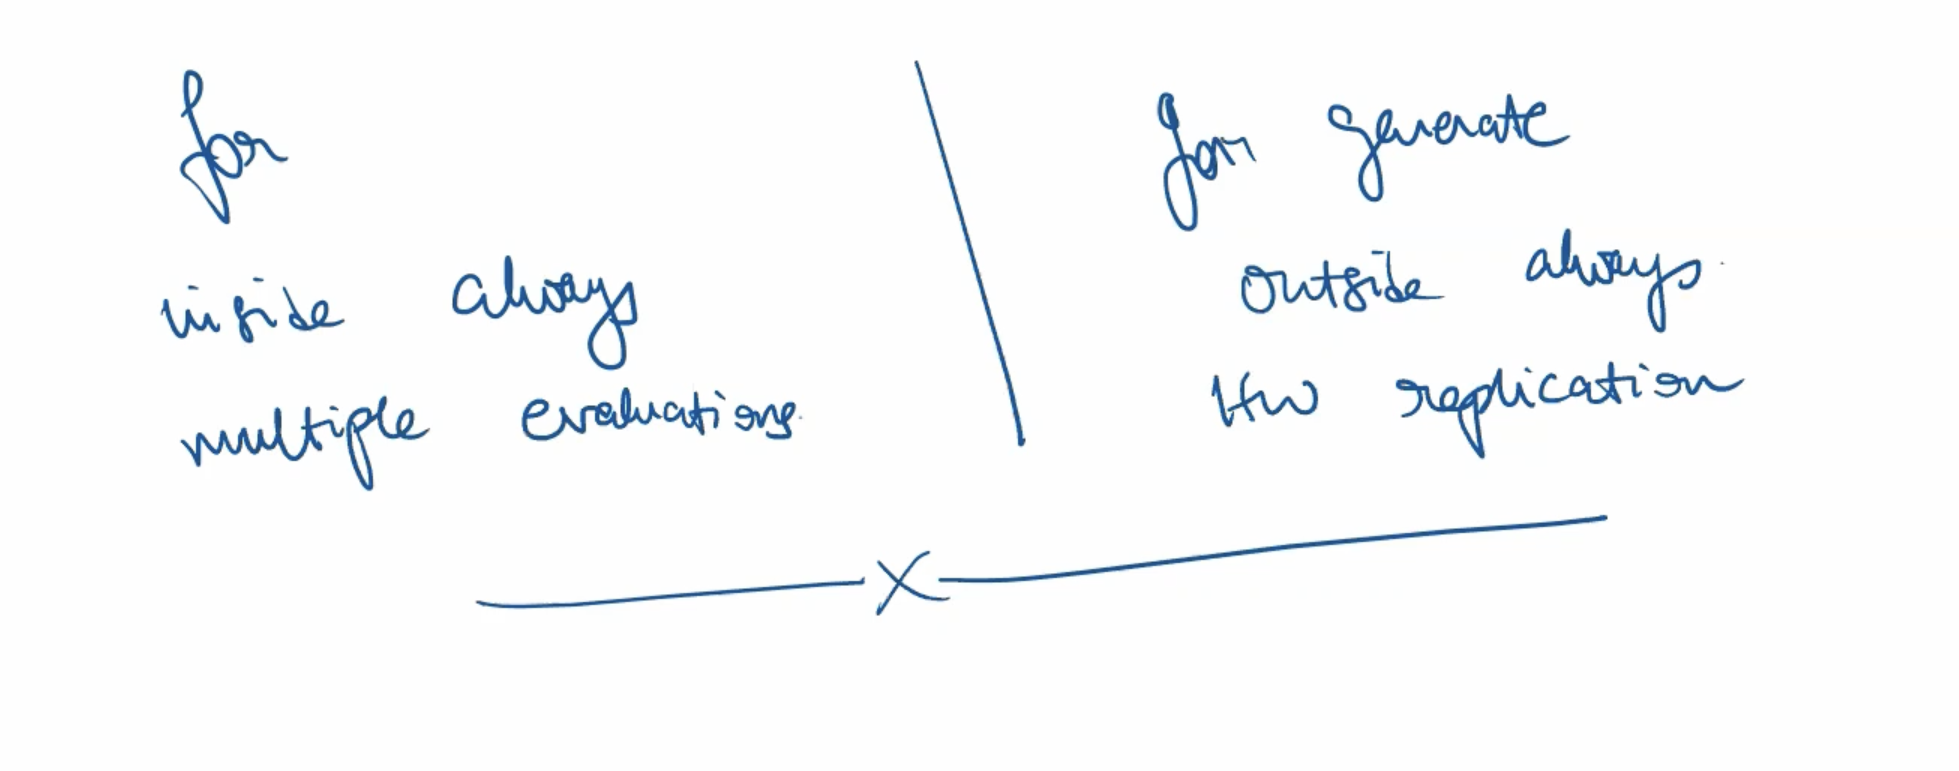 for
inside always
multiple evaluations
for generate
outside always
HW replication
X